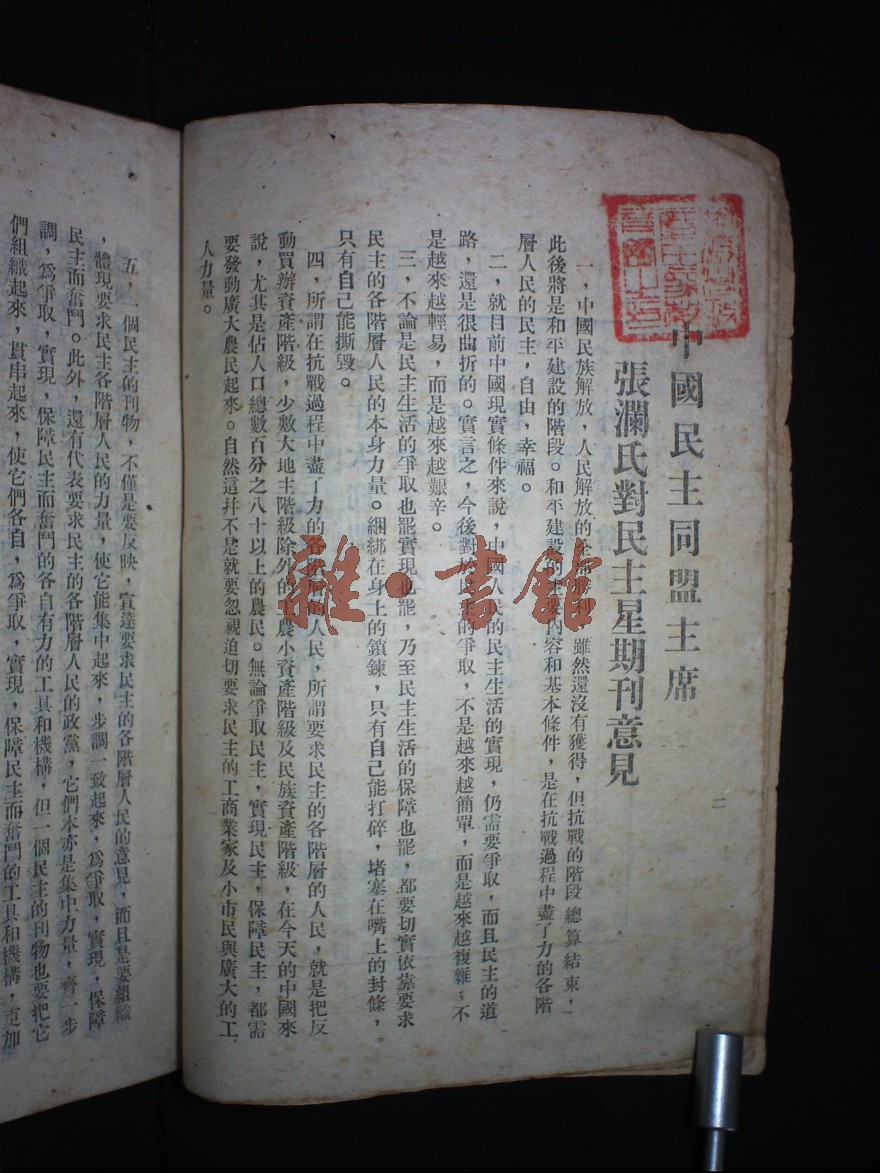 中國民主同盟主席
張瀾氏對民主星期刊意見
一，中國民族解放，人民解放的全部勝利，雖然還沒有獲得，但抗戰的階段總算結束，
此後將是和平建設的階段。和平建設的主要內容和基本條件，是在抗戰過程中盡了力的各階
層人民的民主，自由，幸福。
二，就目前中國現實條件來說，中國人民的民主生活的實現，仍需要爭取，而且民主的道
路，還是很曲折的。實言之，今後對於民主的爭取，不是越來越簡單，而是越來越複雜；不
是越來越輕易，而是越來越艱辛。
三，不論是民主生活的爭取也罷實現也罷，乃至民主生活的保障也罷，都要切實依靠要求
民主的各階層人民的本身力量。綑綁在身上的鎖鍊，只有自己能打碎，堵塞在嘴上的封條，
只有自己能撕毀。
四，所謂在抗戰過程中盡了力的各階層的人民，所謂要求民主的各階層的人民，就是把反
動買辦資產階級，少數大地主階級除外的工農小資產階級及民族資產階級，在今天的中國來
說，尤其是佔人口總數百分之八十以上的農民。無論爭取民主，實現民主，保障民主，都需
要發動廣大農民起來。自然這幷不是就要忽視迫切要求民主的工商業家及小市民與廣大的工
人力量。
二
五，一個民主的刊物，不僅是要反映，宣達要求民主的各階層人民的意見，而且是要組織
，體現要求民主各階層人民的力量，使它能集中起來，步調一致起來，爲爭取，實現，保障
民主而奮鬥。此外，還有代表要求民主的各階層人民的政黨，它們本亦是集中力量，齊一步
調，爲爭取，實現，保障民主而奮鬥的各自有力的工具和機構，但一個民主的刊物也要把它
們組織起來，貫串起來，使它們各自，爲爭取，實現，保障民主而奮鬥的工具和機構，更加
雜·書館